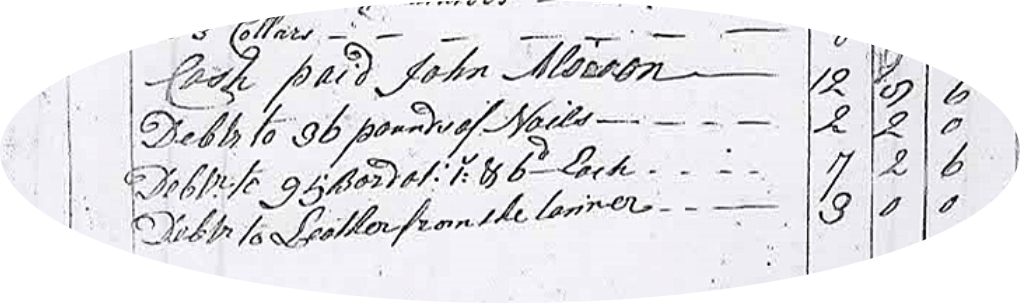 Collars - - - - - -
Cash paid John 12 5 6
Debtr to 36 pounds of Nails - - - - 2 2 0
Debtr to 95 Bord at: 1s: & 6d Each - - - - 7 2 6
Debtr to Leather from the tanner - - - 3 0 0